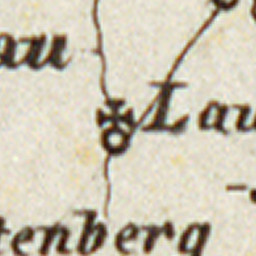 au
Lau
tenberg